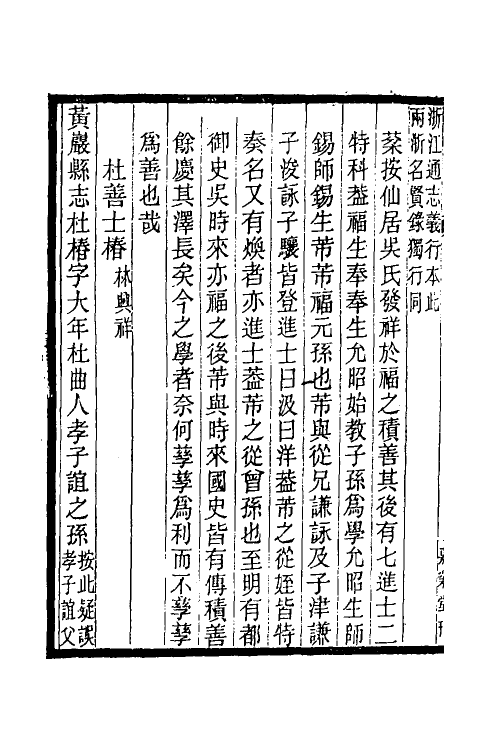 浙江通志義行本此
兩浙名賢錄獨行同
棻按仙居吳氏發祥於福之積善其後有七進士二
特科葢福生奉奉生允昭始教子孫爲學允昭生師
錫師錫生芾芾福元孫也芾與從兄謙詠及子津謙
子浚詠子驤皆登進士曰汲曰洋葢芾之從姪皆特
奏名又有煥者亦進士葢芾之從曾孫也至明有都
御史吳時來亦福之後芾與時來國史皆有傳積善
餘慶其澤長矣今之學者奈何孳孳爲利而不孳孳
爲善也哉
杜善士椿 林興祥
黃巖縣志杜椿字大年杜曲人孝子誼之孫 按此疑誤
孝子誼父